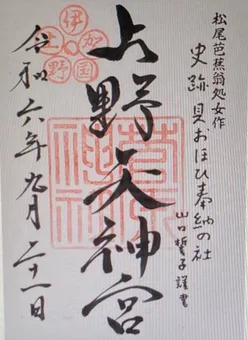 松尾芭蕉翁処女作
史跡 貝おほひ奉納の社
山口誓子謹書
上野天神宮
伊賀国上野
菅原神社
令和六年九月二十一日